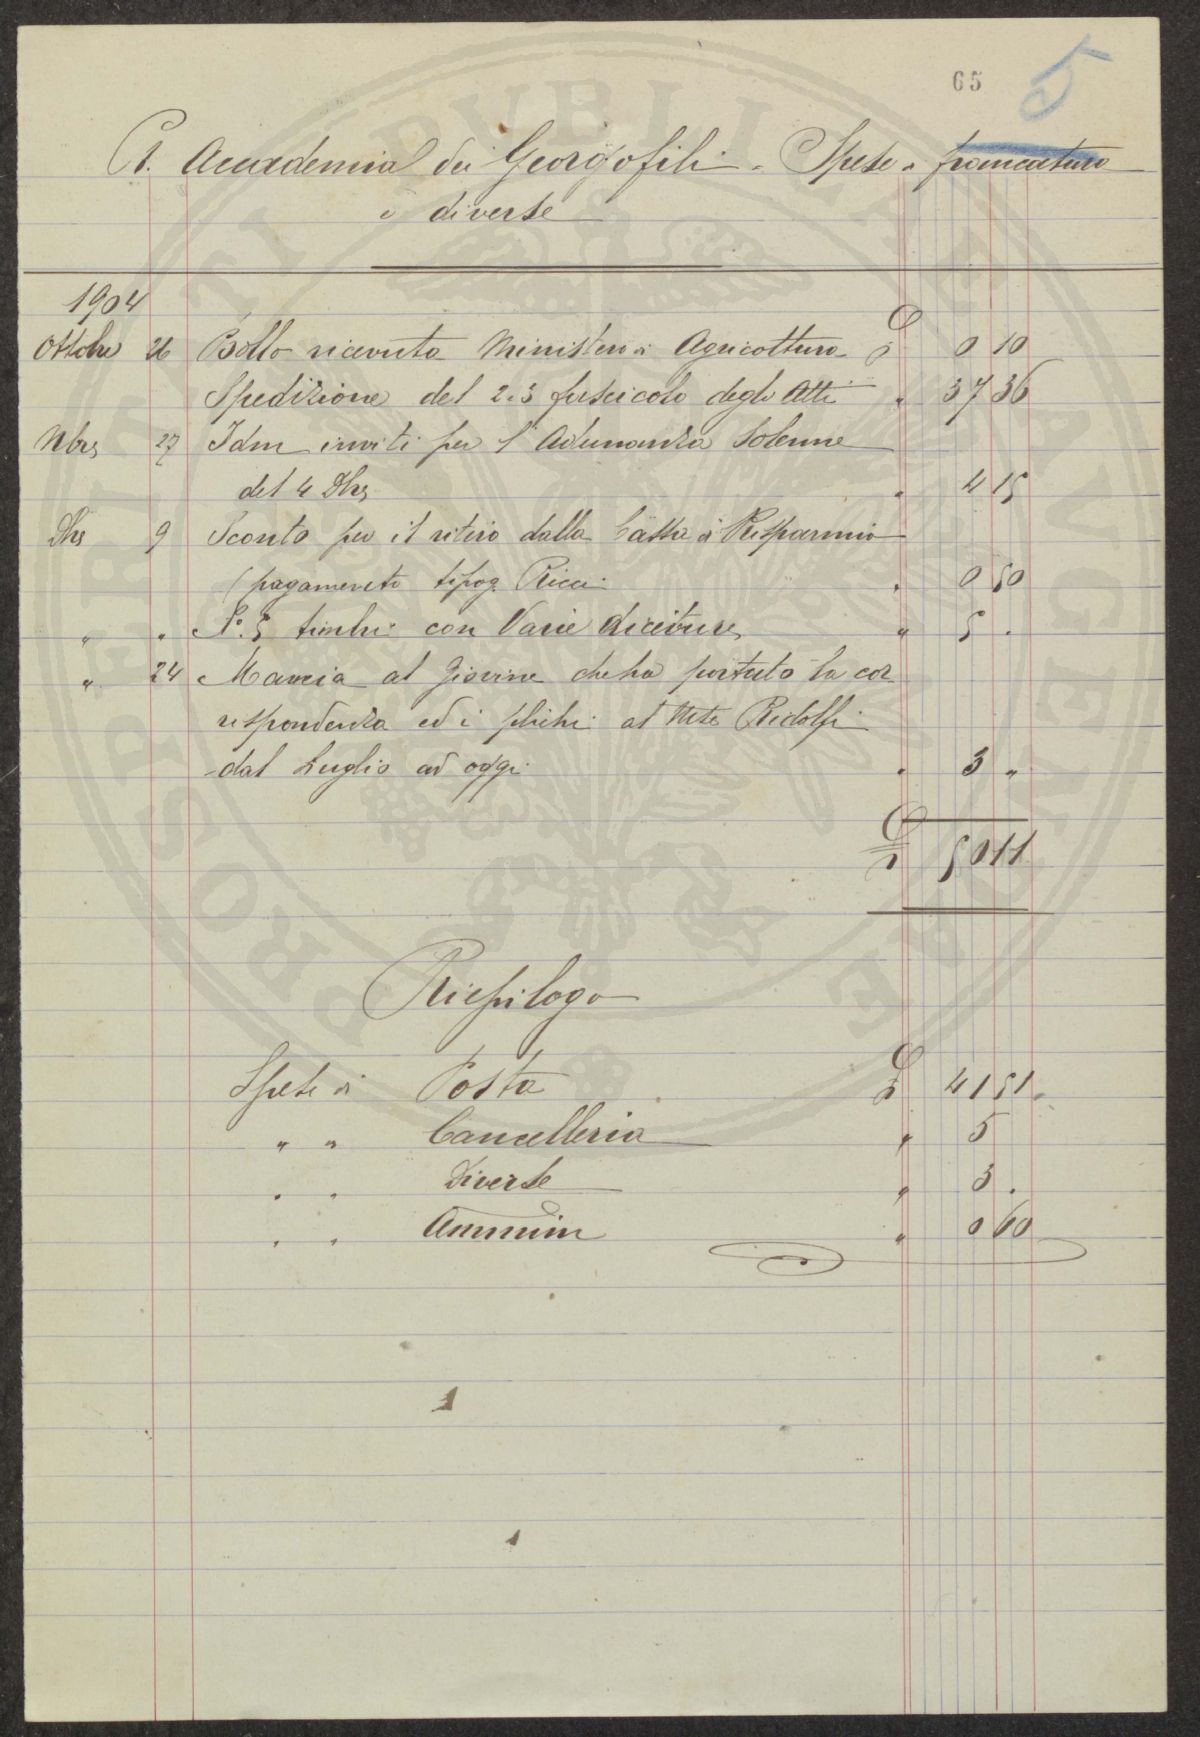 65 5
R. Accademia dei Georgofili - Spese di francatura
e diverse
1904
Ottobre 26 Bollo ricevuta Ministero di Agricoltura £ 0 10
Spedizione del 2.3 fascicolo degli Atti " 37 36
Nbre 27 Idm inviti per l'Adunanza Solenne
del 4 Dbre " 4 15
Dbre 9 Sconto per il ritiro dalla Cassa di Risparmio
(pagamento tipog. Ricci " 0 50
" " N. 5 timbri con Varie diciture " 5 .
" 24 Mancia al Giovine che ha portato la cor
rispondenza ed i plichi al Mse Ridolfi
dal Luglio ad oggi " 3 "
£ 50 11
Riepilogo
Spese di Posta £ 41 51
" " Cancelleria " 5
" " Diverse " 3 .
" " Ammin " 0 60
PROSPERITATI PUBLICAE AUGENDAE